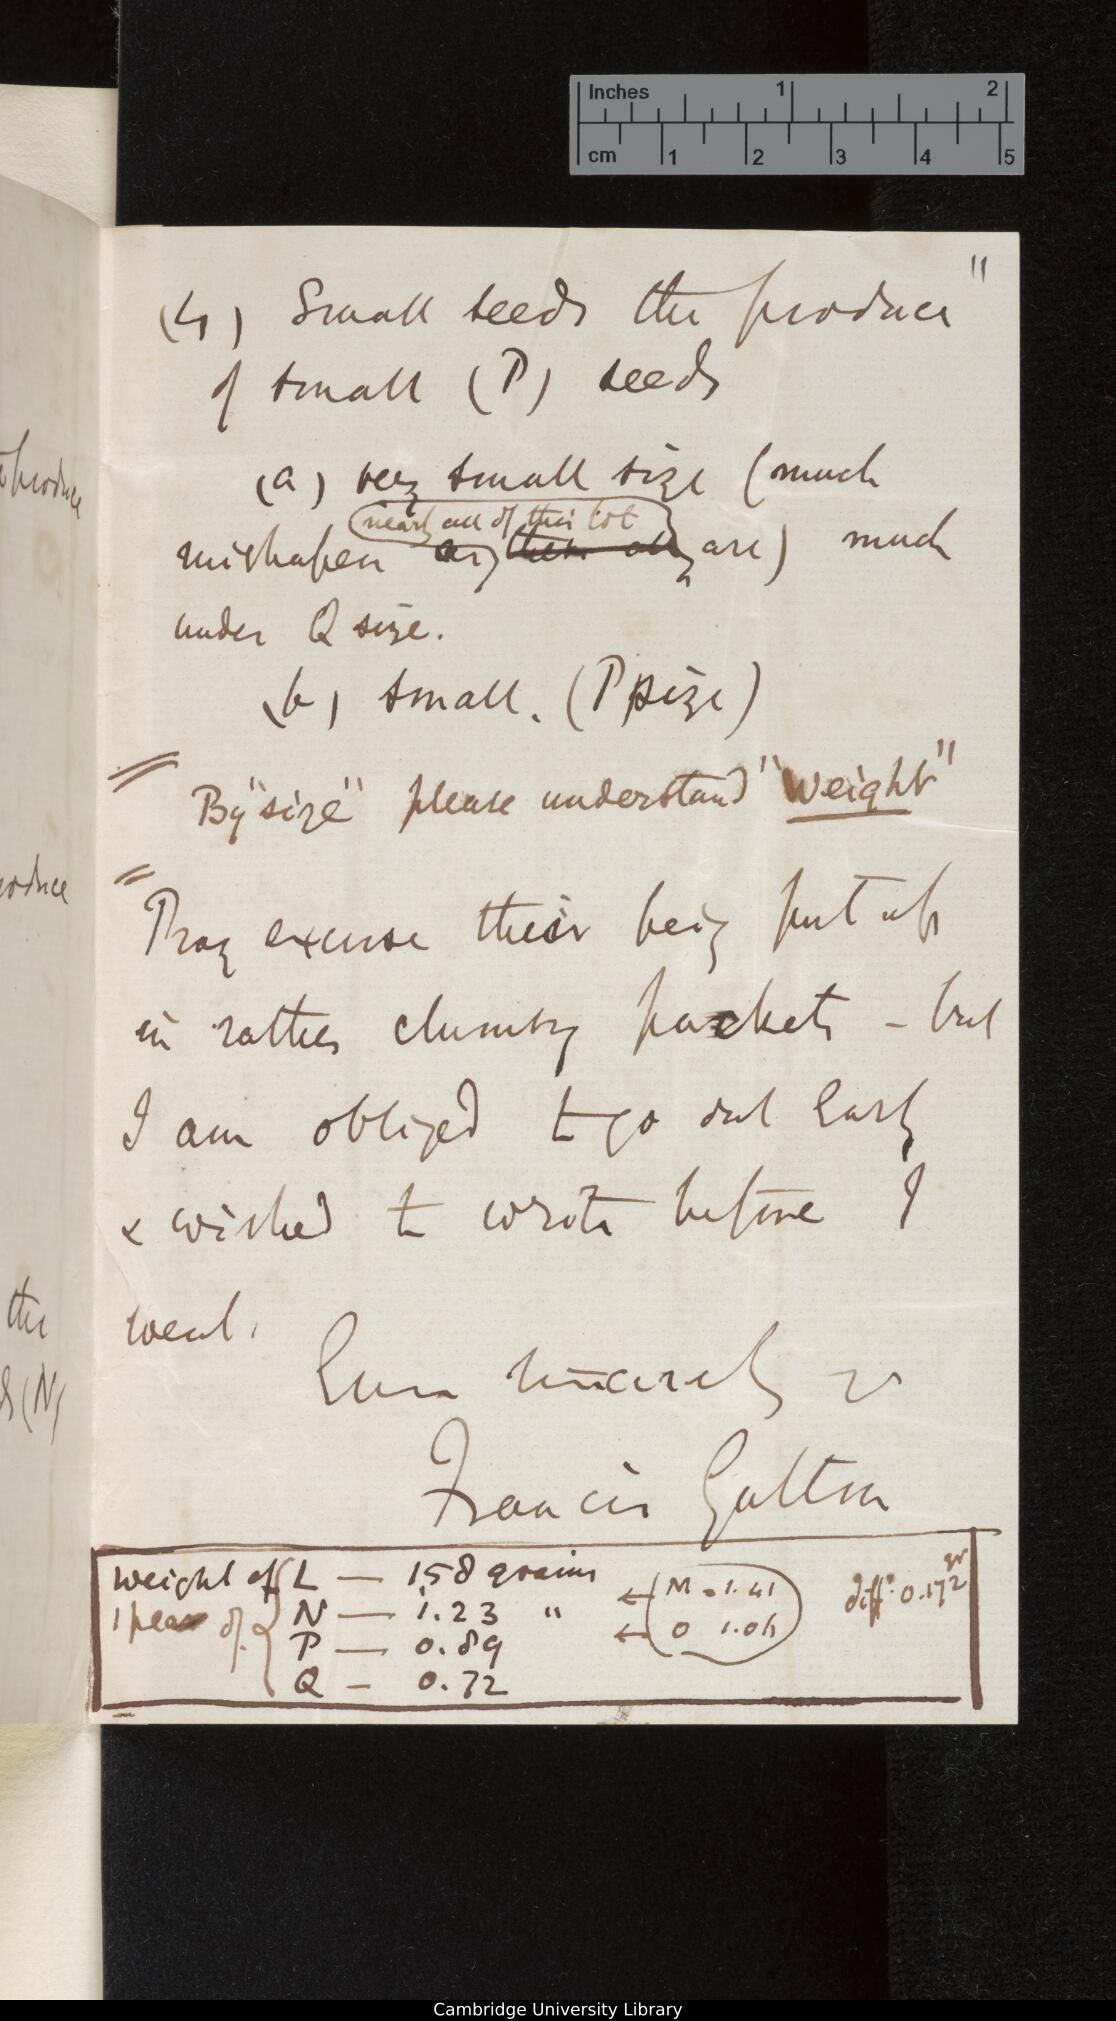 Inches 1 2
cm 1 2 3 4 5
11
(4) Small seeds the produce
of small (P) seeds
(a) very small size (much
nearly all of this lot
mishapen as are) much
under Q size.
(b) small. (P size)
By "size" please understand "weight"
Pray excuse their being put up
in rather clumsy packets – but
I am obliged to go out early
& wished to write before I
went.
Ever sincerely yrs
Francis Galton
weight of L — 1.58 grains
1 pea of N — 1.23 "
P — 0.89
Q — 0.72
← M = 1.41
← O 1.06
diff: 0.172 gr
produce
produce
the
(N)
Cambridge University Library